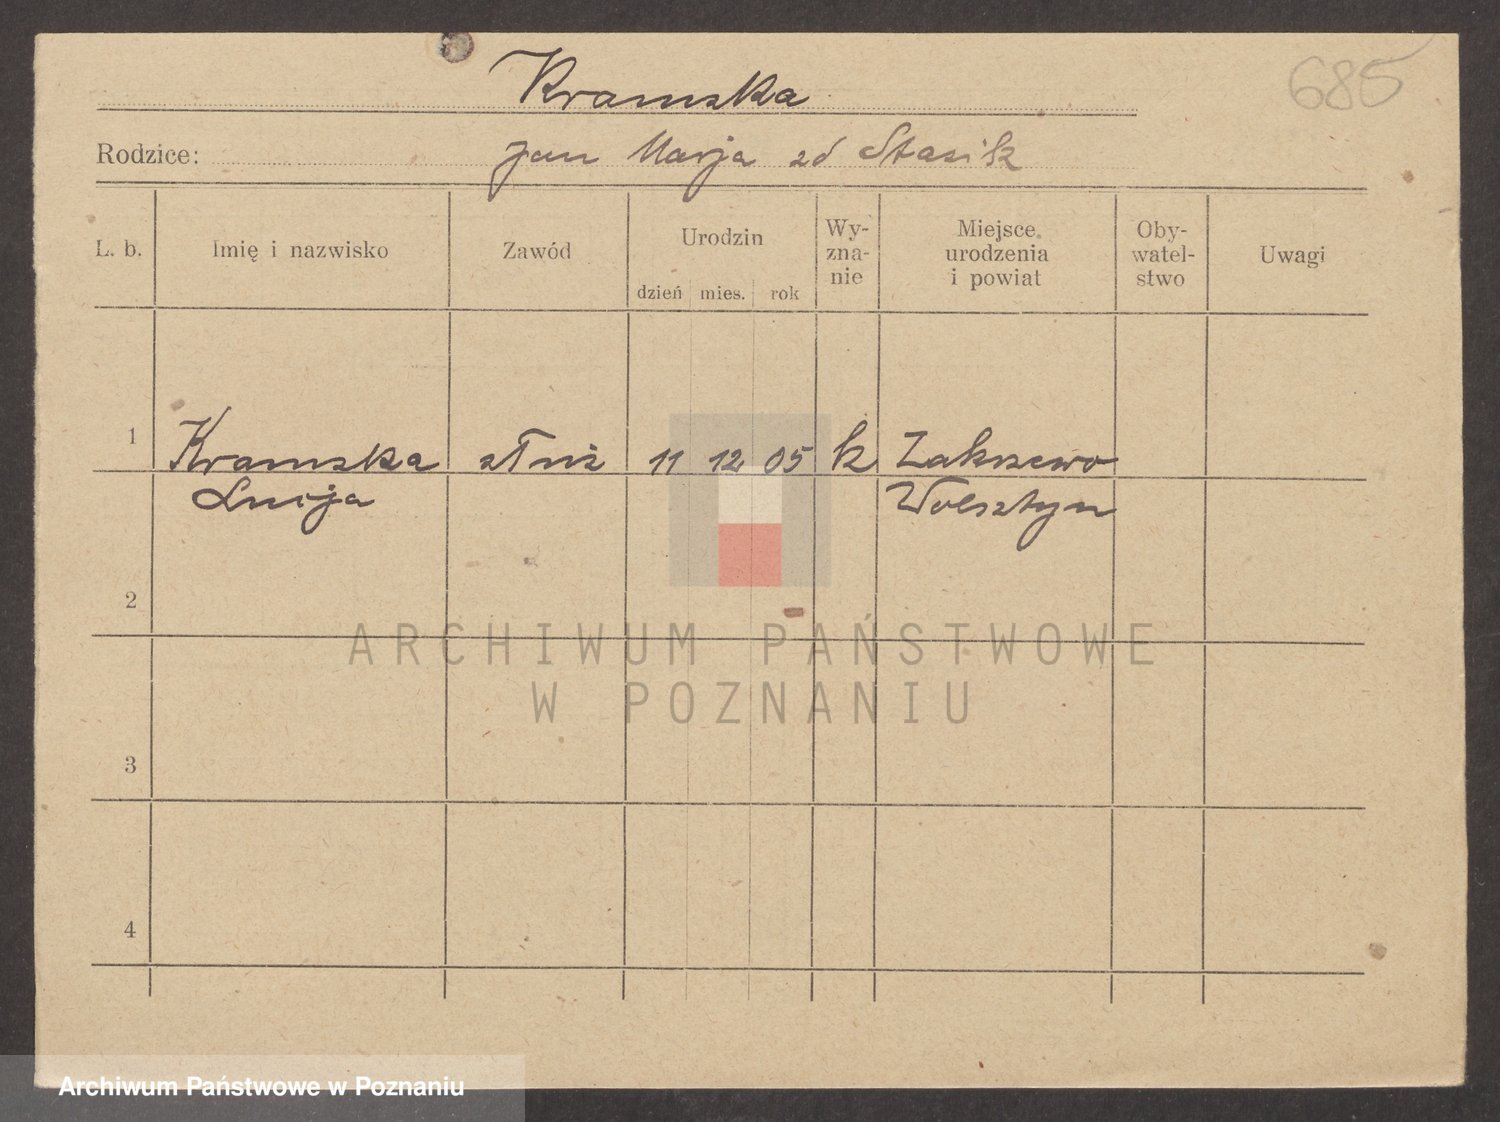 685
Kramska
Rodzice: Jan Marja zd Stasik
L. b.
Imię i nazwisko
Zawód
Urodzin
dzień mies. rok
Wy-
zna-
nie
Miejsce
urodzenia
i powiat
Oby-
watel-
stwo
Uwagi
1 Kramska 11 12 05 k Zakrzewo
Wolsztyn
2
3
4
ARCHIWUM PAŃSTWOWE
W POZNANIU
Archiwum Państwowe w Poznaniu